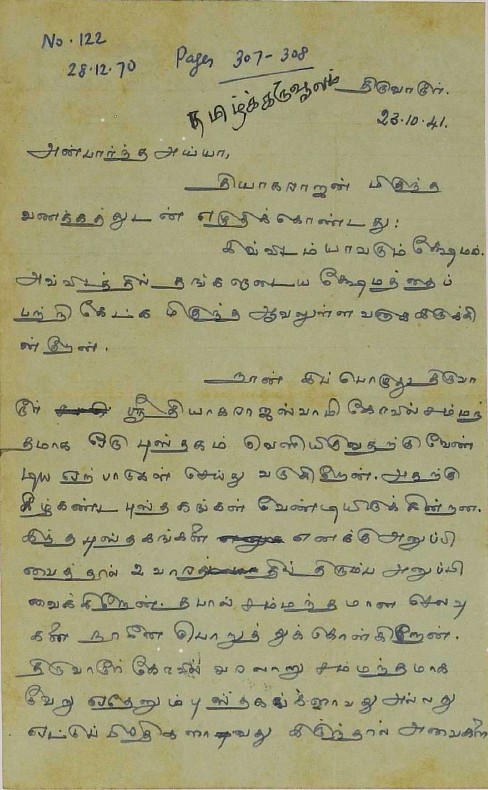 No. 122
28.12.70
Pages 307-308
தமிழ்க்கருவூலம்
திருவாரூர்.
23.10.41.
அன்பார்ந்த அய்யா,
தியாகராஜன் மிகுந்த
வணக்கத்துடன் எழுதிக்கொண்டது:
இவ்விடம் யாவரும் க்ஷேமம்.
அவ்விடத்தில் தங்களுடைய க்ஷேமத்தைப்
பற்றி கேட்க மிகுந்த ஆவலுள்ளவனாக இருக்கி
ன்றேன்.
நான் இப்பொழுது திருவா
ரூர் ஸ்ரீ தியாகராஜஸ்வாமி கோவில் சம்மந்
தமாக ஒரு புஸ்தகம் வெளியிடுவதற்கு வேண்
டிய ஏற்பாடுகள் செய்து வருகிறேன். அதற்கு
கீழ்கண்ட புஸ்தகங்கள் வேண்டியிருக்கின்றன.
இந்த புஸ்தகங்களை எனக்கு அனுப்பி
வைத்தால் 2 வாரத்தில் திரும்ப அனுப்பி
வைக்கிறேன். தபால் சம்மந்தமான செலவு
களை நானே பொறுத்துக்கொள்கிறேன்.
திருவாரூர் கோவில் வரலாறு சம்மந்தமாக
வேறு ஏதேனும் புஸ்தகங்களாவது அல்லது
ஏட்டுப் பிரதிகளாவது இருந்தால் அவைகளை